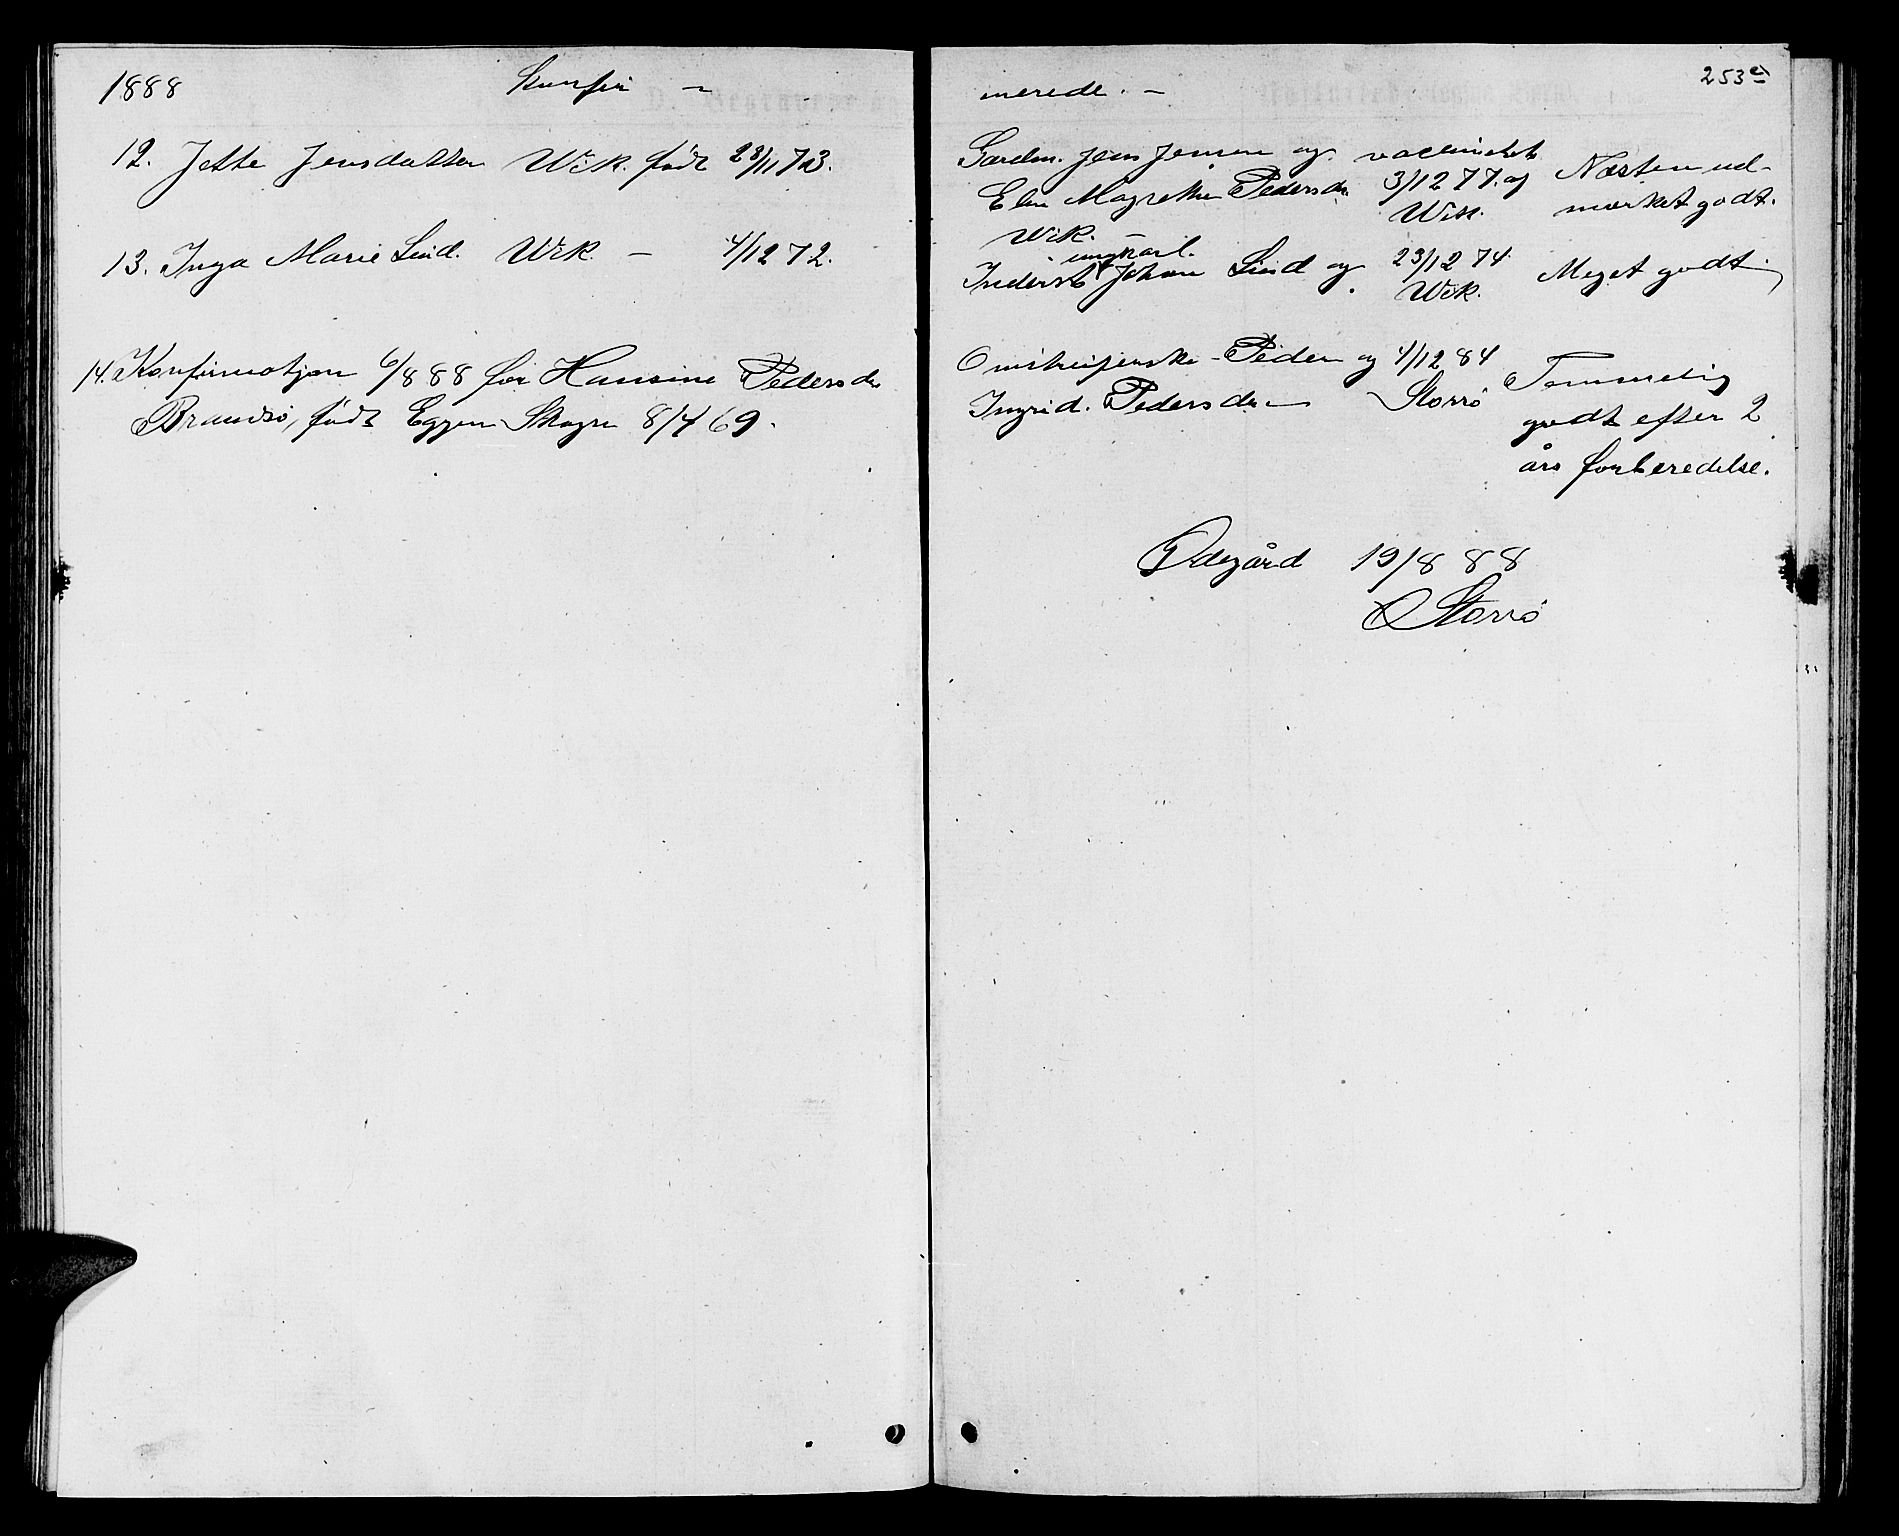 1888 Konfir-
12. Jette Jensdatter Wik. født 28/11 73.
13. Inga Marie Lind. Wik. - 4/12 72.
14. Konfirmatjon 6/8 88 for Hansine Pedersdr
Brandsö, født Eggen Skogn 8/4 69.
merede. -
253
Gardm. Jens Jensen og vaccineret Næsten ud-
Elen Magrethe Pedersdr. 3/12 77. af mærket godt.
Wik. Wik.
ungkarl.
Inderst Johan Lind og 23/12 74 Meget godt
Wik.
Peder og 4/12 84 Temmelig
Ingrid. Pedersdr. - Storrö godt efter 2
års forberedelse.
Ödegård 19/8 88
O Storrö